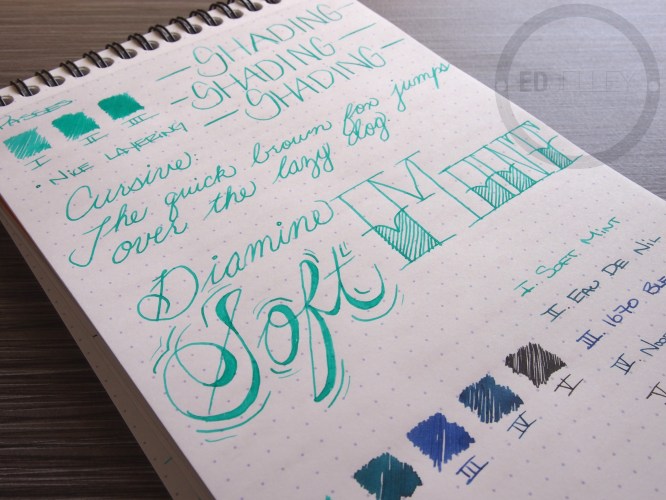 SHADING
SHADING
SHADING
PASSES
I II III
• NICE LAYERING
Cursive:
The quick brown fox jumps
over the lazy dog.
Diamine
Soft MINT
I. SOFT MINT
II. EAU DE NIL
III. 1670
IV
V
III IV V
ED